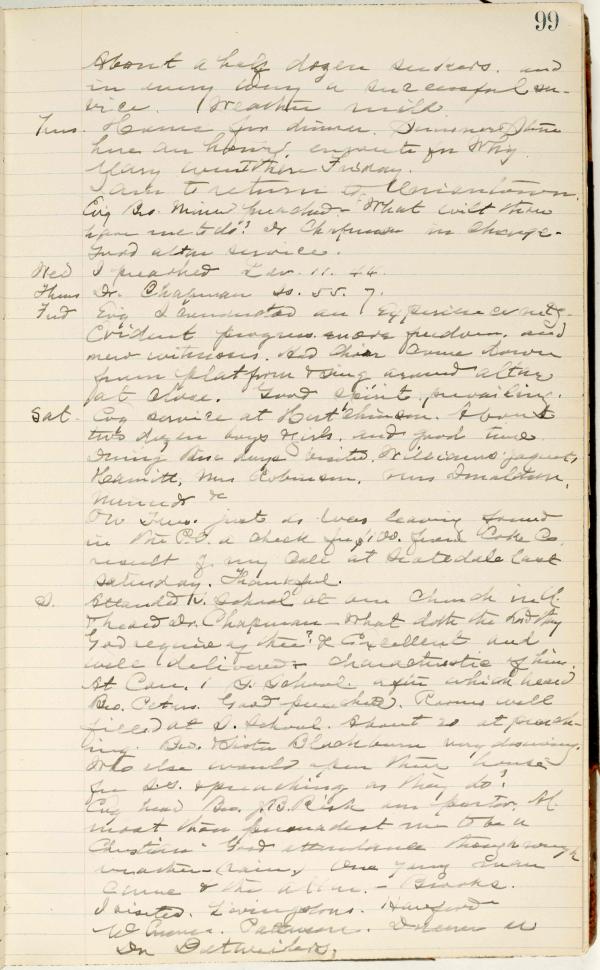 99
About a half dozen seekers. and
in every way a successful ser-
vice. Weather mild.
Tues. Home for dinner.
here an hour, enroute for
Mary went there Friday.
to return to Uniontown.
Evg Bro. Miner preached - "What wilt thou
have me to do?" Dr Chapman in charge -
Good altar service.
Wed I preached Lev. 11. 44.
Thurs Dr. Chapman Is. 55. 7.
Frid Evg I conducted an Experience mtg -
Evident progress more freedom and
new witnesses. Had choir come down
from platform & sing around altar
at close. Good spirit prevailing.
Sat. Evg service at Hutchinson. About
two dozen boys & girls. and good time.
During these days visited Williams,
Mrs Robinson, Mrs Donaldson,
Minerd &c
On Tues. just as I was leaving found
in the P.O. a check for from Coke Co.
result of my call at Scottdale last
Saturday. Thankful.
S. Attended S. School at our Church in U.
& heard Dr. Chapman - What doth the Lord thy
God require of thee? &c Excellent and
well delivered & characteristic of him.
At Con. 1 S. School. after which heard
Bro. Peters. Good preacher. Rooms well
filled at S. School. About 20 at preach-
ing. Bro. & Sister Blackburn very deserving.
Who else would open their house
for S.S. & preaching as they do?
Evg heard Bro. J.B. Risk our pastor. Al-
most thou persuadest me to be a
Christian - Good attendance though rough
weather - rain, One young man
came to the altar. - Brooks.
I visited. Livingstons. Hansford
Patterson. Dinner at
Dr Detweilers.